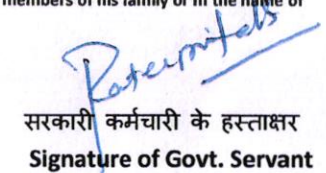 members of his family or in the name of
सरकारी कर्मचारी के हस्ताक्षर
Signature of Govt. Servant